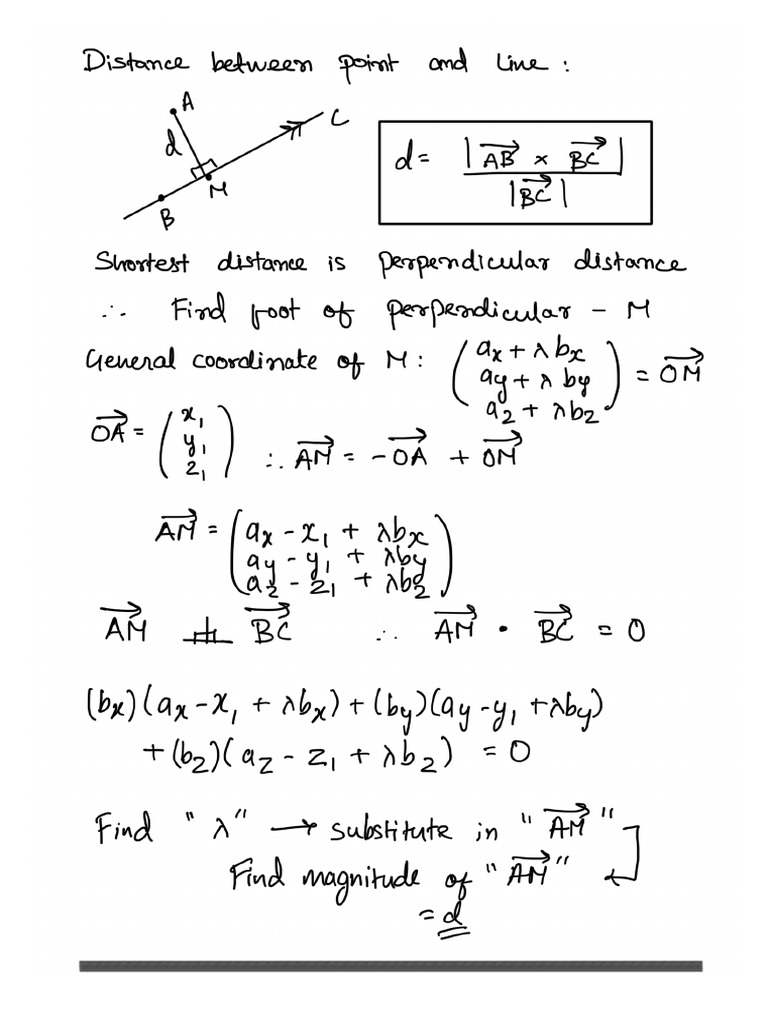 Distance between point and line :
A
d
C
M
B
d = |AB→ × BC→| / |BC→|
Shortest distance is perpendicular distance
∴ Find foot of perpendicular - M
General coordinate of M : (ax + λbx
ay + λby
az + λbz) = OM→
OA→ = (x₁
y₁
z₁) ∴ AM→ = -OA→ + OM→
AM→ = (ax - x₁ + λbx
ay - y₁ + λby
az - z₁ + λbz)
AM→ ⊥ BC→ ∴ AM→ · BC→ = 0
(bx)(ax - x₁ + λbx) + (by)(ay - y₁ + λby)
+ (bz)(az - z₁ + λbz) = 0
Find "λ" → substitute in "AM→"
Find magnitude of "AM→"
= d